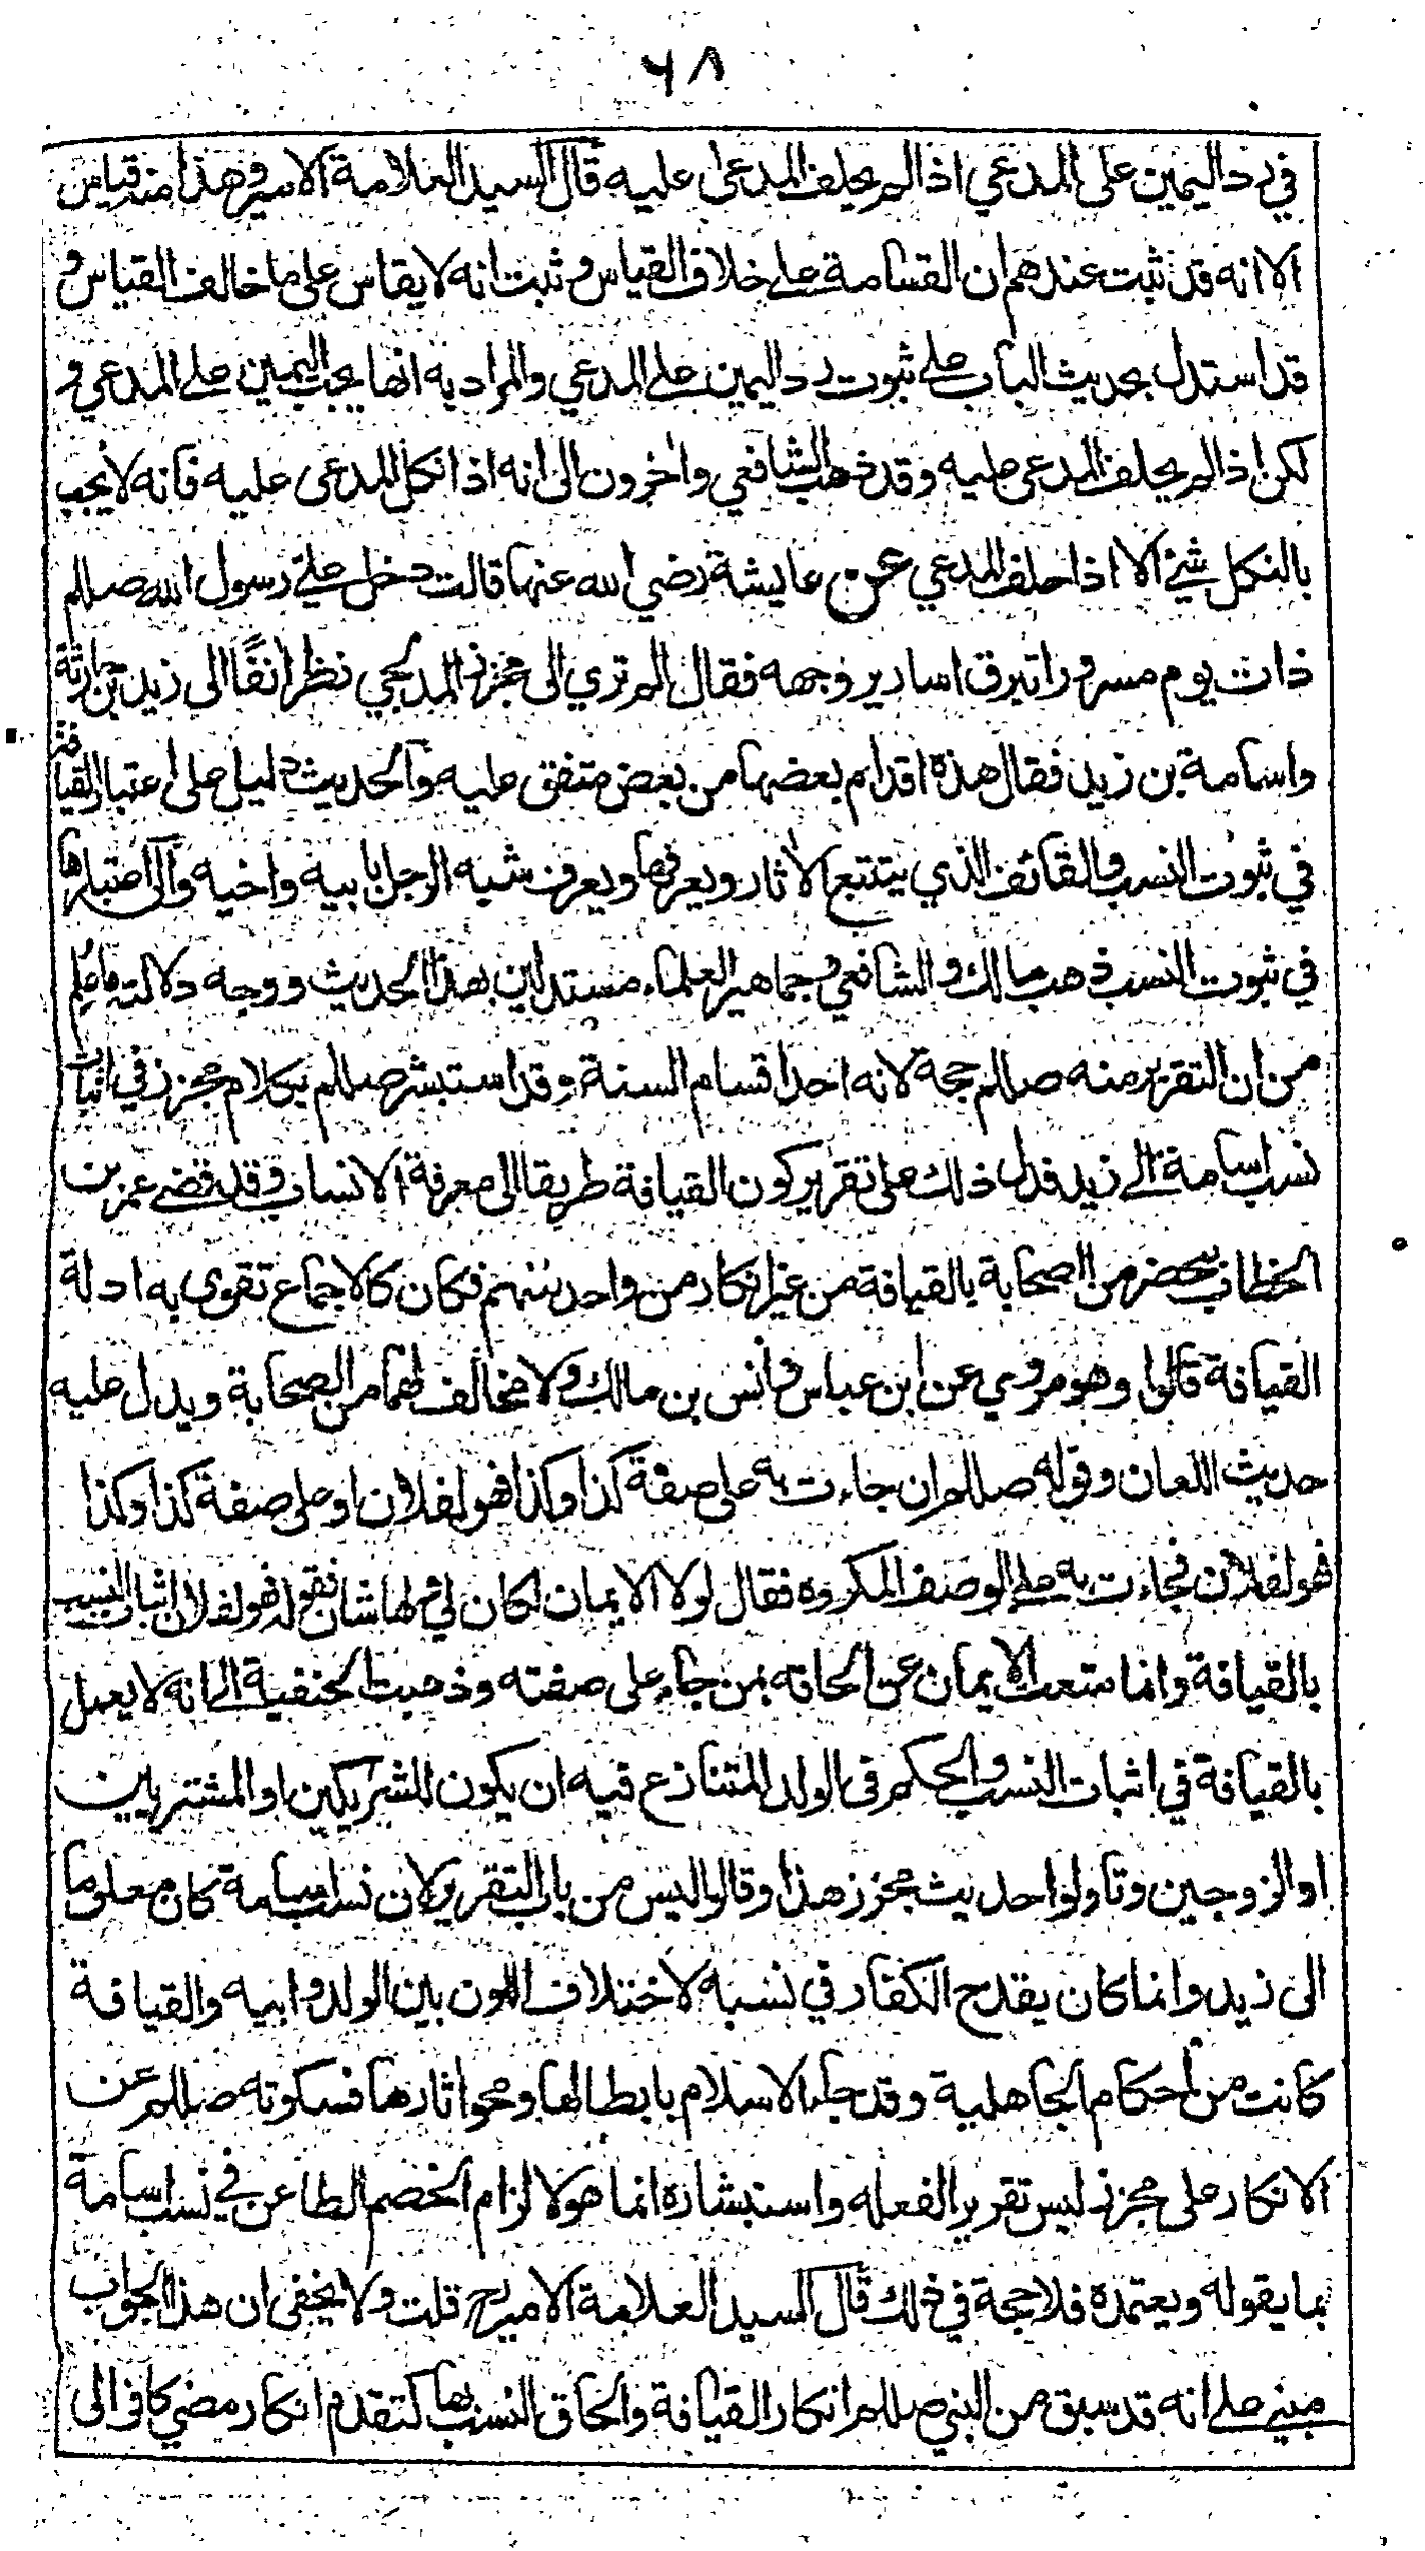 ٦٨
في رد اليمين على المدعي اذا لم يحلف المدعى عليه قال السيد العلامة الامير وهذا منه قياس
الا انه قد ثبت عندهم ان القسامة على خلاف القياس وثبت انه لا يقاس على ما خالف القياس و
قد استدل بحديث الباب على ثبوت رد اليمين على المدعي والمراد به انها يجب اليمين على المدعي و
لكن اذا لم يحلف المدعى عليه وقد ذهب الشافعي واخرون الى انه اذا نكل المدعى عليه فانه لا يجب
بالنكل شئ الا اذا حلف المدعي عن عايشة رضي الله عنها قالت دخل علي رسول الله صللم
ذات يوم مسرورا تبرق اسارير وجهه فقال الم تري الى مجزز المدلجي نظر انفًا الى زيد بن حارثة
واسامة بن زيد فقال هذه اقدام بعضها من بعض متفق عليه والحديث دليل على اعتبار القيافة
في ثبوت النسب والقائف الذي يتتبع الاثار ويعرفها ويعرف شبه الرجل بابيه واخيه والى اعتبارها
في ثبوت النسب ذهب مالك والشافعي وجماهير العلماء مستدلين بهذا الحديث ووجه دلالته ما علم
من ان التقرير منه صللم حجة لانه احد اقسام السنة وقد استبشر صللم بكلام مجزز في اثبات
نسب اسامة الى زيد فدل ذلك على تقرير كون القيافة طريقا الى معرفة الانساب وقد قضى عمر بن
الخطاب بمحضر من الصحابة بالقيافة من غير انكار من واحد منهم فكان كالاجماع تقوى به ادلة
القيافة قالوا وهو مروي عن ابن عباس وانس بن مالك ولا مخالف لهما من الصحابة ويدل عليه
حديث اللعان وقوله صللم ان جاءت به على صفة كذا وكذا فهو لفلان او على صفة كذا وكذا
فهو لفلان فجاءت به على الوصف المكروه فقال لولا الايمان لكان لي ولها شان فقوله فهو لفلان اثبات النسب
بالقيافة وانما منعت الايمان عن الحاقه بمن جاء على صفته وذهبت الحنفية الى انه لا يعمل
بالقيافة في اثبات النسب والحكم في الولد المتنازع فيه ان يكون للشريكين او المشتريين
او الزوجين وتاولوا حديث مجزز هذا وقالوا ليس من باب التقرير لان نسب اسامة كان معلوما
الى زيد وانما كان يقدح الكفار في نسبه لاختلاف اللون بين الولد وابيه والقيافة
كانت من احكام الجاهلية وقد جاء الاسلام بابطالها ومحو اثارها فسكوته صللم عن
الانكار على مجزز ليس تقريرا لفعله واستبشاره انما هو لالزام الخصم الطاعن في نسب اسامة
بما يقوله ويعتمده فلا حجة في ذلك قال السيد العلامة الامير رح قلت ولا يخفى ان هذا الجواب
مبني على انه قد سبق من النبي صللم انكار القيافة والحاق النسب بها كتقدم انكار مضي كافر الى